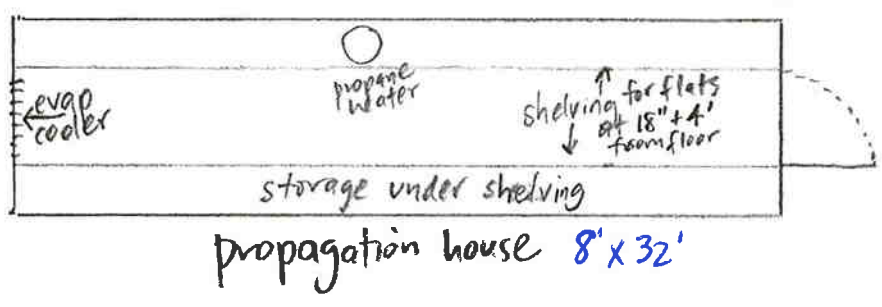 propane
heater
evap
cooler
shelving for flats
at 18" + 4'
from floor
storage under shelving
propagation house 8' x 32'